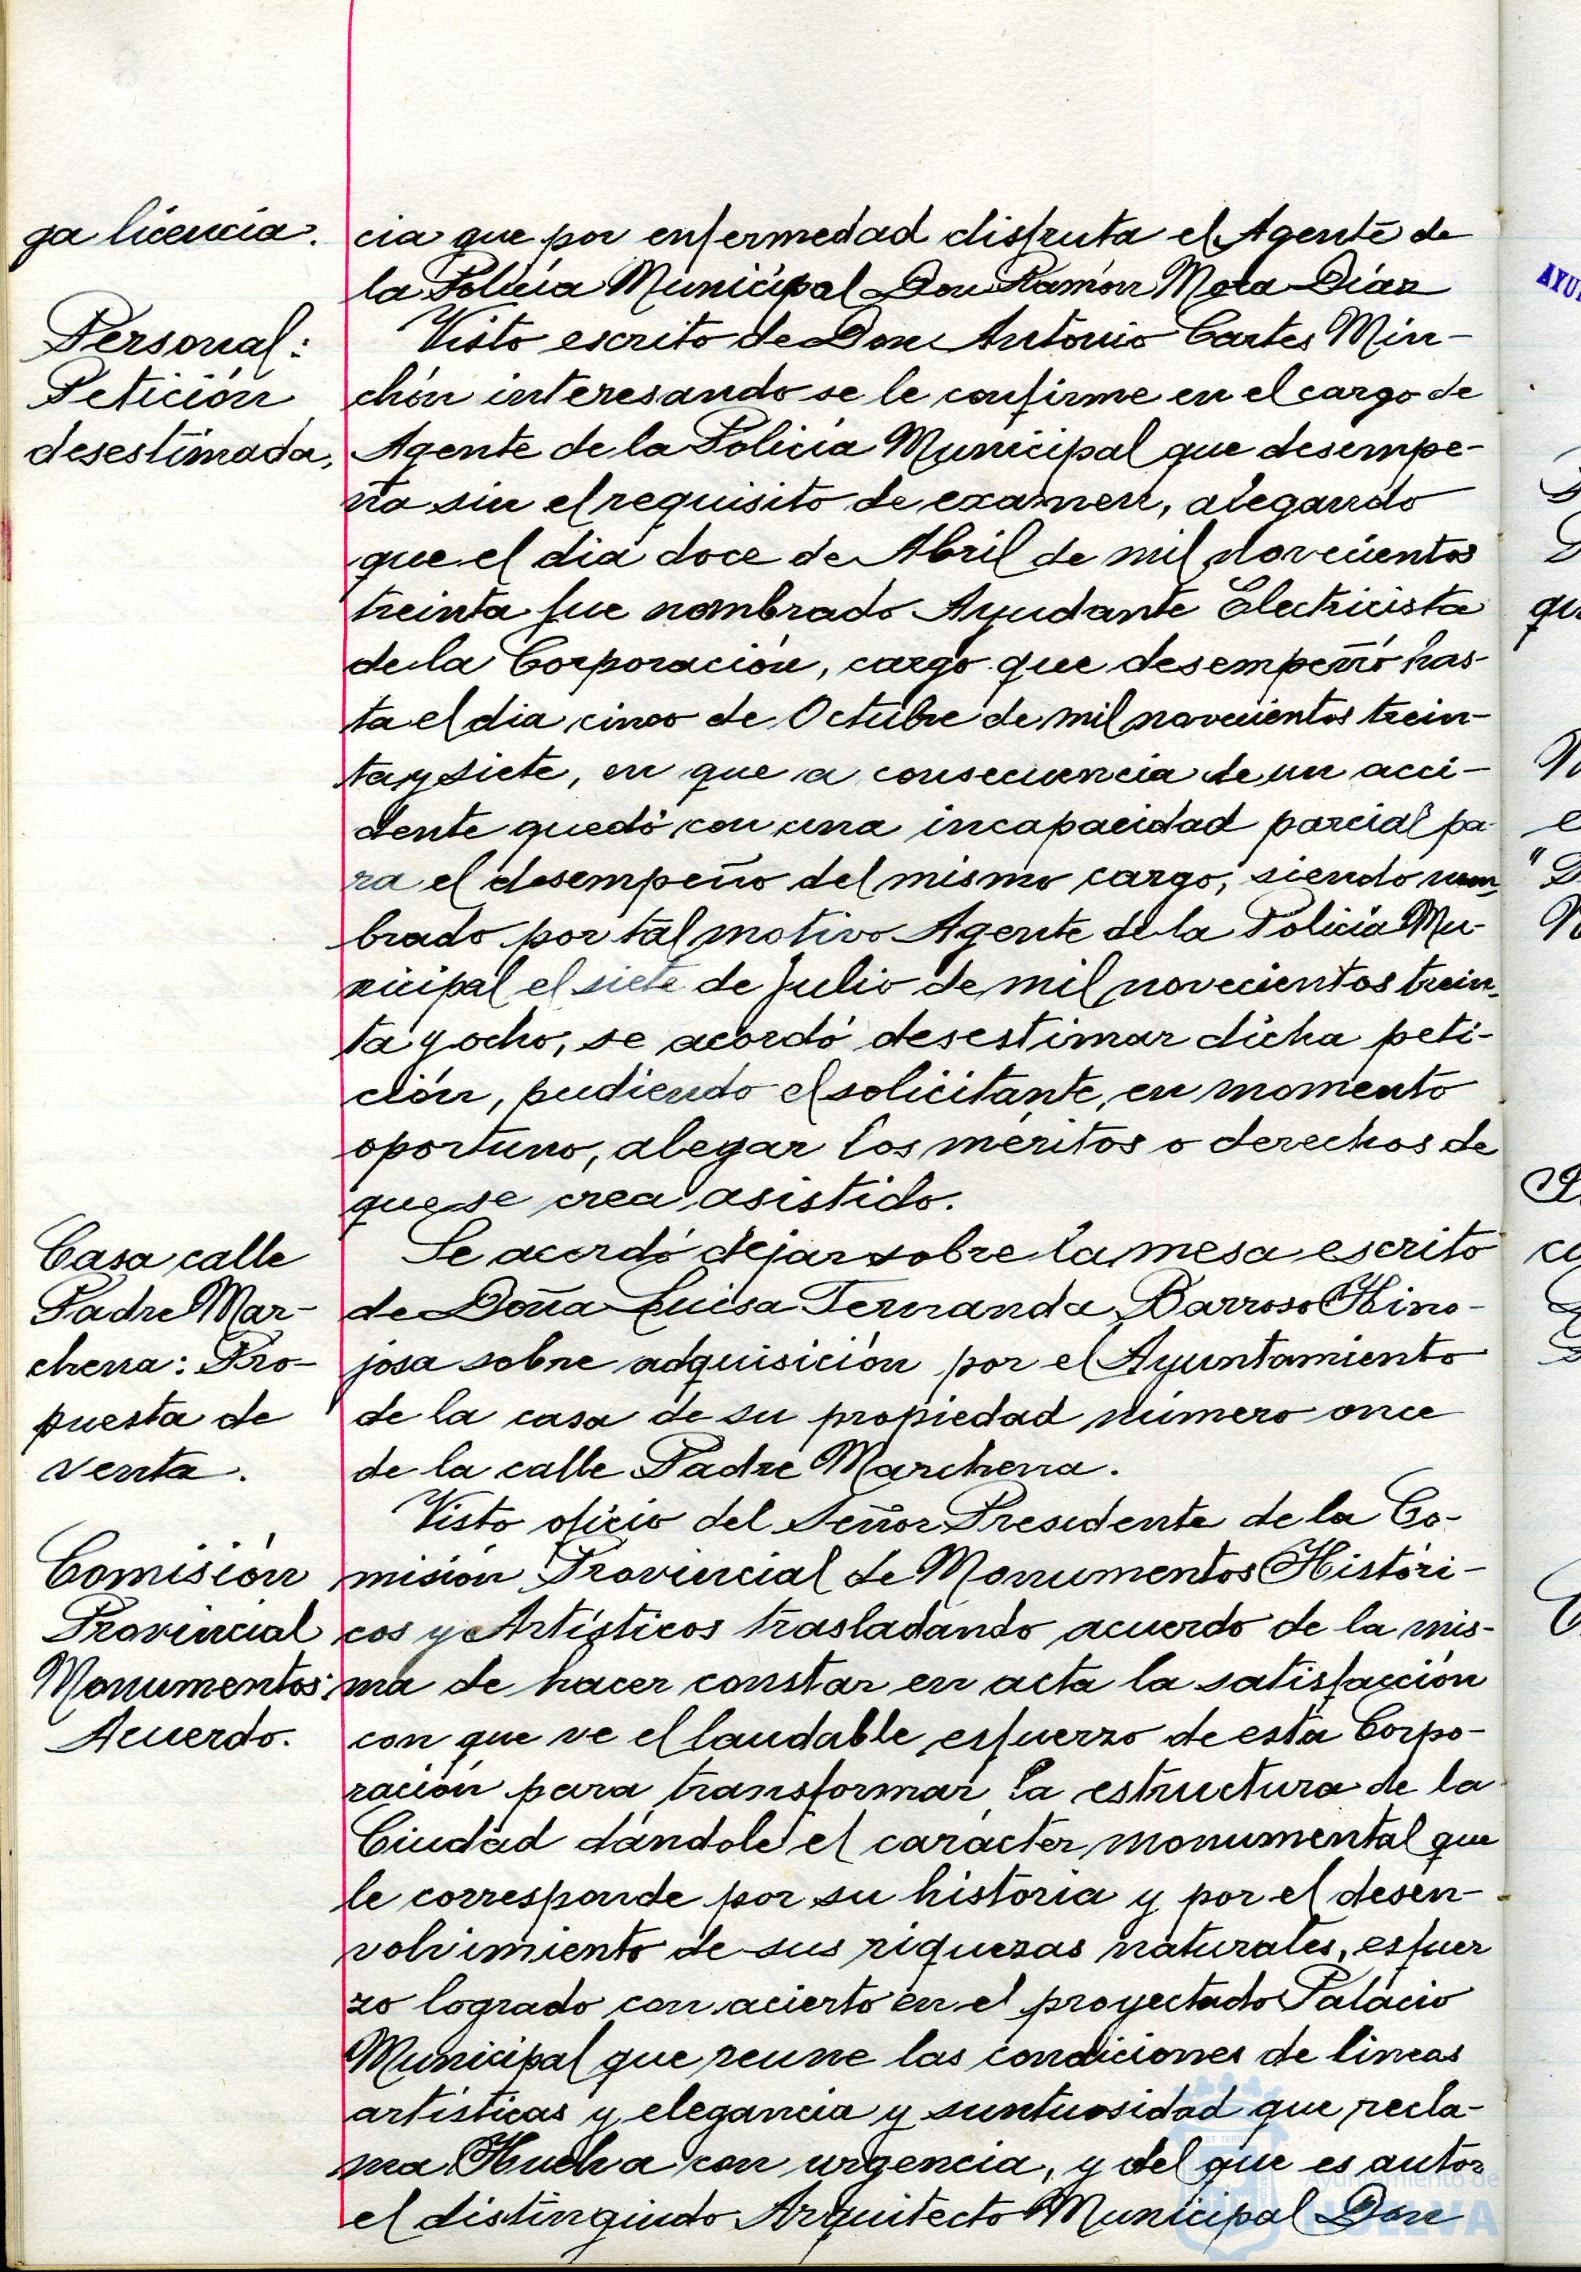 ga licencia.
cia que por enfermedad disfruta el Agente de
la Policía Municipal Don Ramón Mora Díaz
Personal:
Petición
desestimada.
Visto escrito de Don Antonio Cartes Min-
chón interesando se le confirme en el cargo de
Agente de la Policía Municipal que desempe-
ña sin el requisito de examen, alegando
que el dia doce de Abril de mil novecientos
treinta fue nombrado Ayudante Electricista
de la Corporación, cargo que desempeñó has-
ta el dia cinco de Octubre de mil novecientos trein-
ta y siete, en que a consecuencia de un acci-
dente quedó con una incapacidad parcial pa-
ra el desempeño del mismo cargo, siendo nom-
brado por tal motivo Agente de la Policía Mu-
nicipal el siete de Julio de mil novecientos trein-
ta y ocho, se acordó desestimar dicha peti-
ción, pudiendo el solicitante, en momento
oportuno, alegar los méritos o derechos de
que se crea asistido.
Casa calle
Padre Mar-
chena: Pro-
puesta de
venta.
Se acordó dejar sobre la mesa escrito
de Doña Luisa Fernanda Barroso Hino-
josa sobre adquisición por el Ayuntamiento
de la casa de su propiedad número once
de la calle Padre Marchena.
Comisión
Provincial
Monumentos:
Acuerdo.
Visto oficio del Señor Presidente de la Co-
misión Provincial de Monumentos Históri-
cos y Artísticos trasladando acuerdo de la mis-
ma de hacer constar en acta la satisfacción
con que ve el laudable esfuerzo de esta Corpo-
ración para transformar la estructura de la
Ciudad dándole el carácter monumental que
le corresponde por su historia y por el desen-
volvimiento de sus riquezas naturales, esfuer
zo logrado con acierto en el proyectado Palacio
Municipal que reune las condiciones de lineas
artísticas y elegancia y suntuosidad que recla-
ma Huelva con urgencia, y del que es autor
el distinguido Arquitecto Municipal Don
Ayuntamiento de
HUELVA